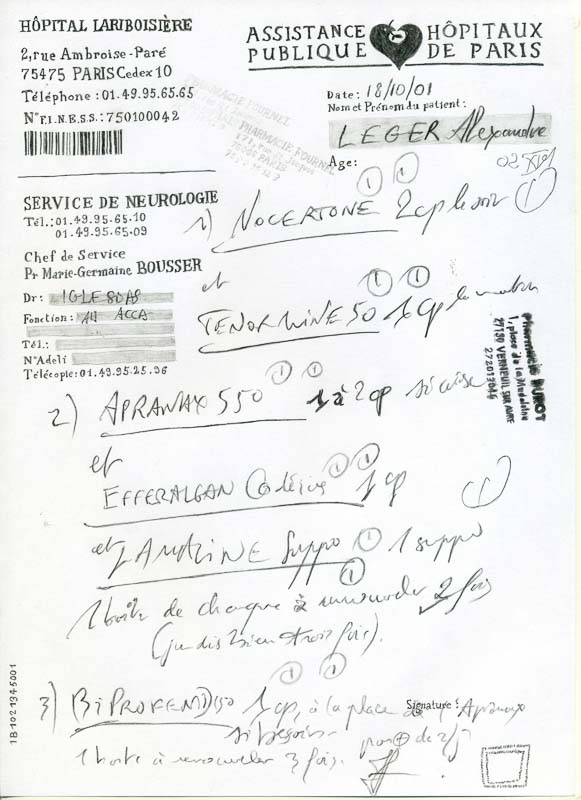 HÔPITAL LARIBOISIÈRE
2, rue Ambroise-Paré
75475 PARIS Cedex 10
Téléphone : 01.49.95.65.65
N° F.I.N.E.S.S. : 750100042
ASSISTANCE HÔPITAUX
PUBLIQUE DE PARIS
Date : 18/10/01
Nom et Prénom du patient :
LEGER Alexandre
Age :
PHARMACIE FOURNEL
PHARMACIE FOURNEL
75014 PARIS
SERVICE DE NEUROLOGIE
Tél. : 01.49.95.65.10
01.49.95.65.09
Chef de Service
Pr Marie-Germaine BOUSSER
Dr :
Fonction : ACCA
Tél. :
N° Adeli
Télécopie : 01.49.95.25.96
1) NOCERTONE 2 cp le soir
1 1 1
et
TENORMINE 50 1 cp le matin
1 1
Pharmacie BUROT
1, place de la Madeleine
27130 VERNEUIL SUR AVRE
272013046
2) APRANAX 550 1 à 2 cp si crise
1 1
et
EFFERALGAN Codéine 1 cp
1 1 1
et Suppo 1 suppo
1
1 boite de chaque à renouveler 2 fois
1
(je dis bien trois fois).
3) BiPROFENID 150 1 cp, à la place de Apranax
1 1
Signature :
si besoin de 2/j
1 boite à renouveler 3 fois.
1B-102134-5001